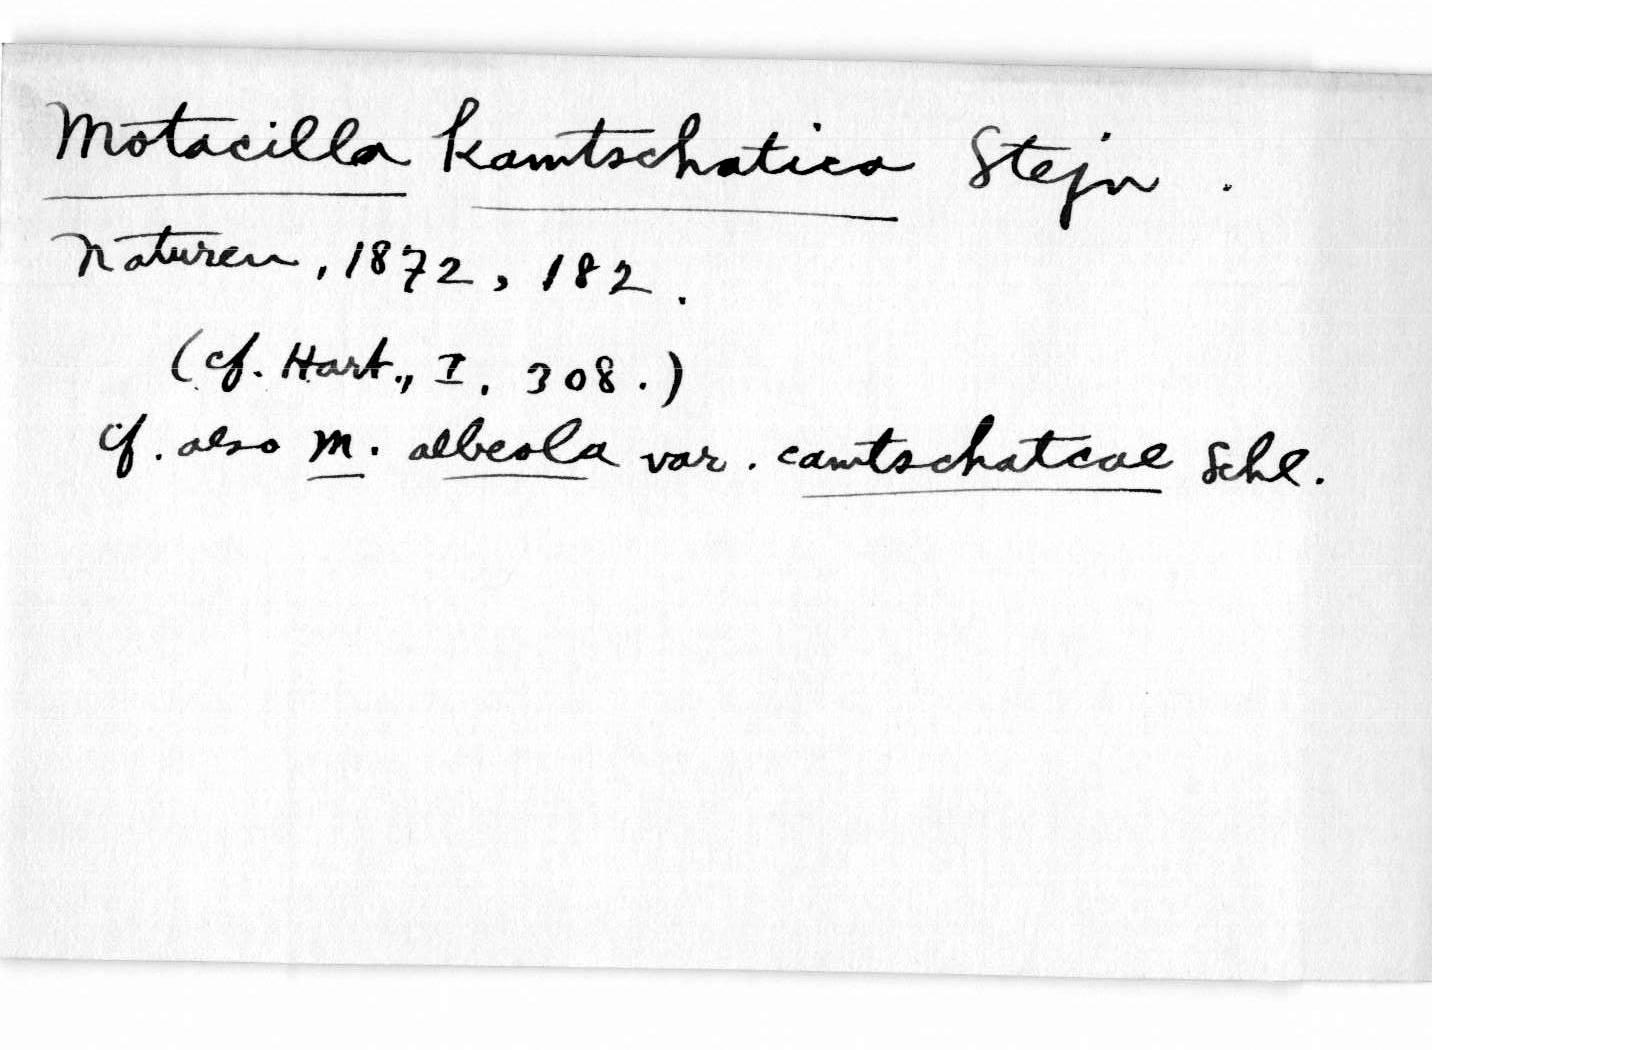 Motacilla kamtschatica Stejn.
Naturen, 1872, 182.
(cf. Hart., I. 308.)
cf. also M. albeola var. camtschatcae Schl.